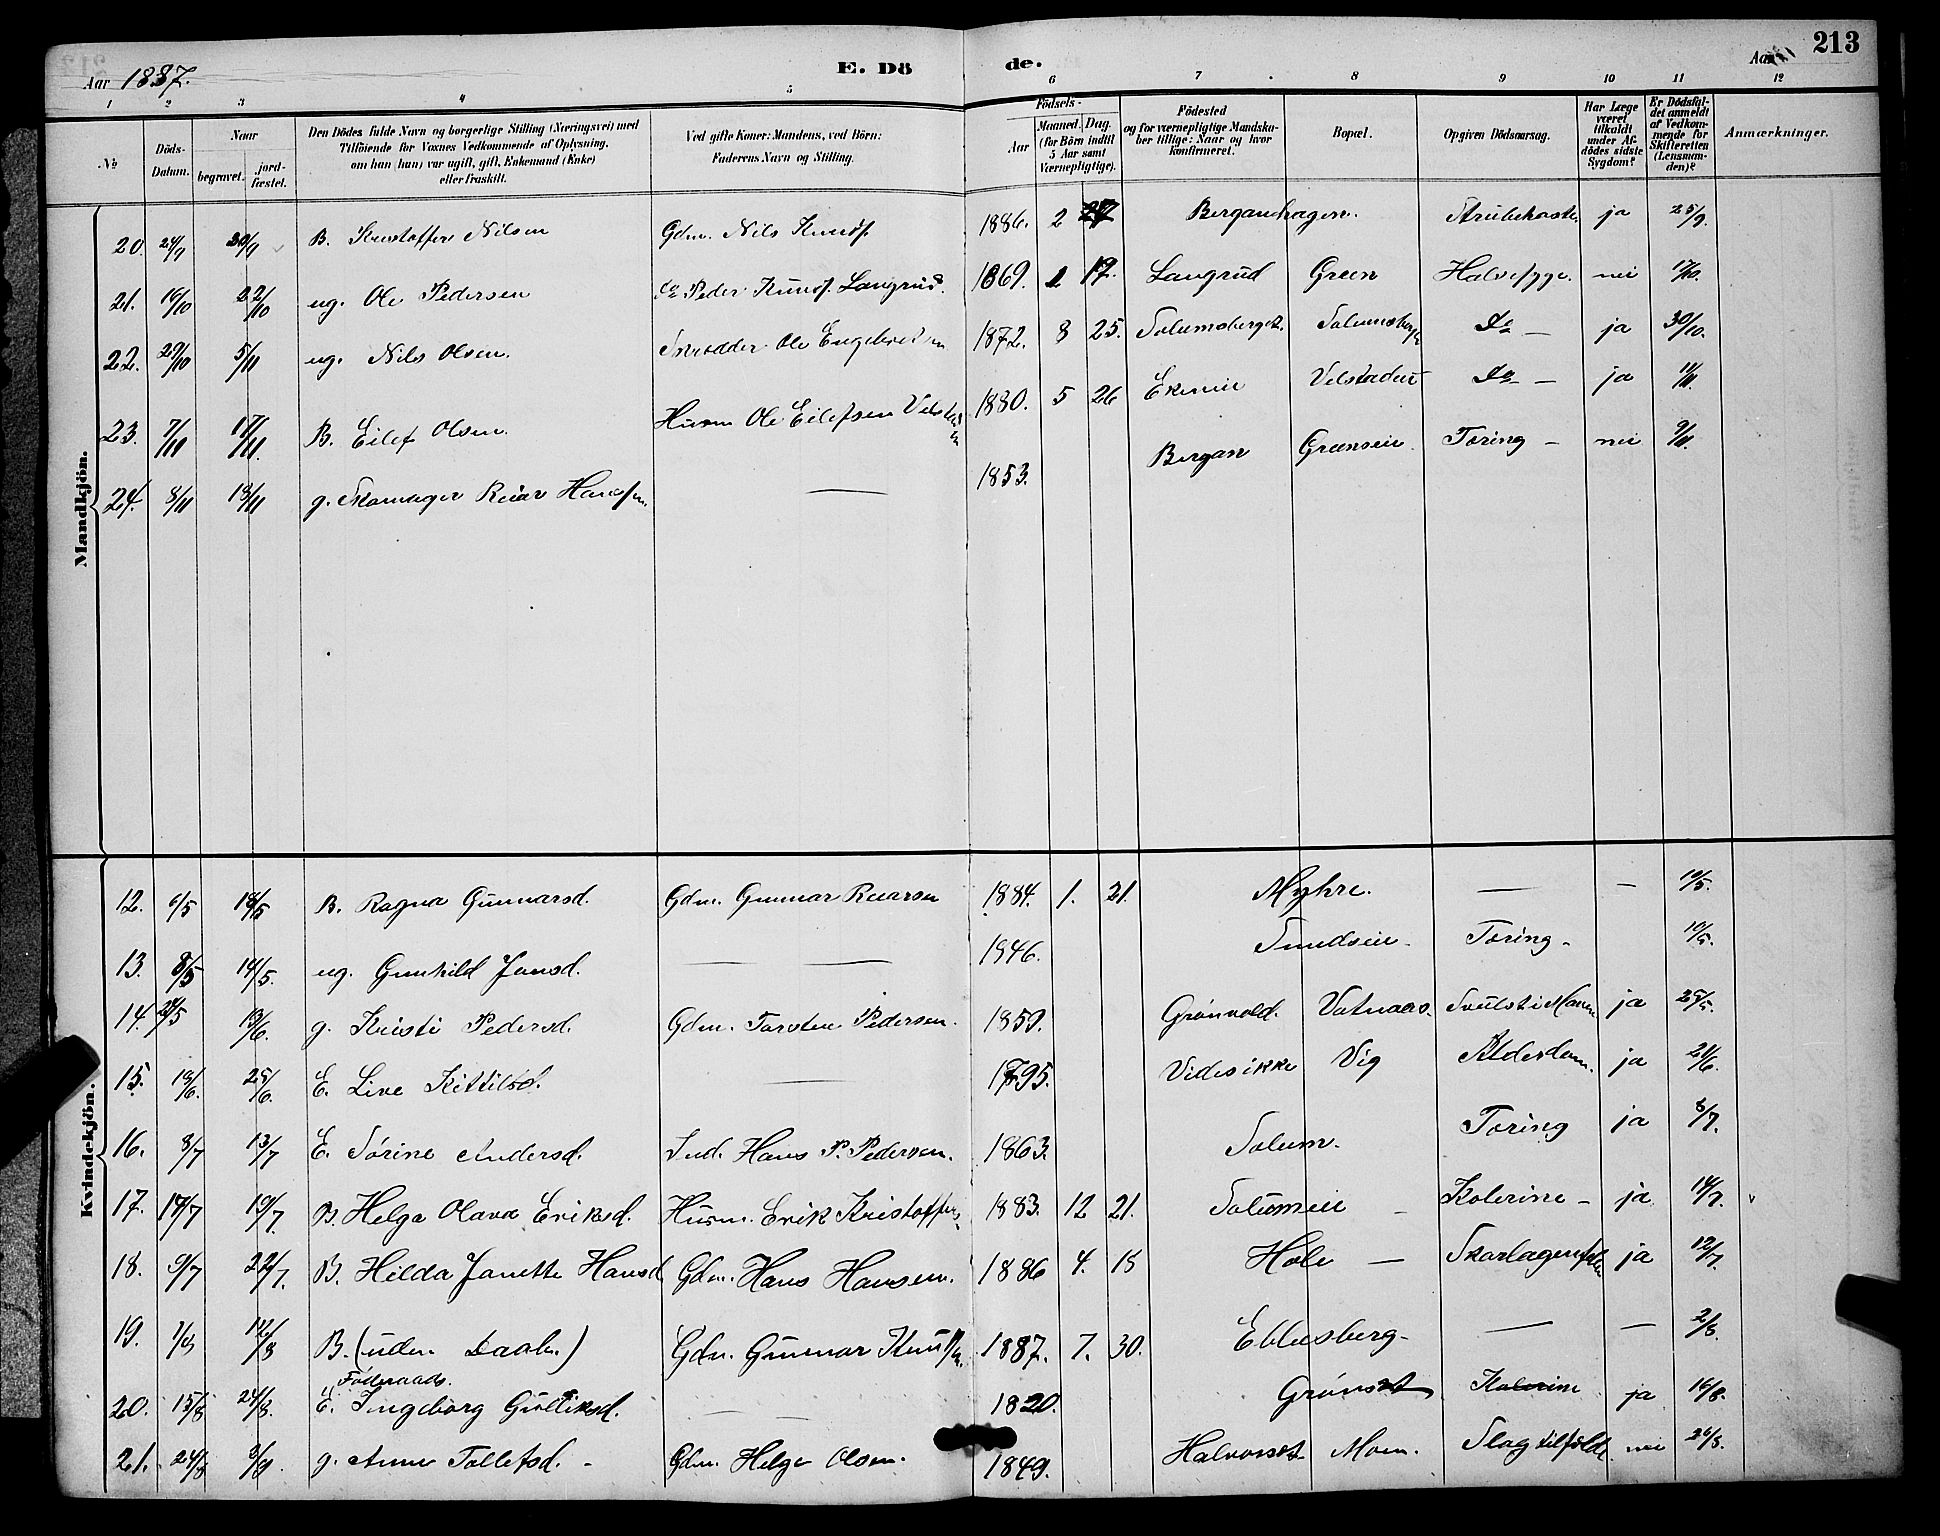 213
Aar 1887. E. Dö de. Aar
1 2 3 4 5 6 7 8 9 10 11 12
№ Döds-Datum. Naar begravet. jord-fæstet. Den Dödes fulde Navn og borgerlige Stilling (Næringsvei) med Tilföiende for Voxnes Vedkommende af Oplysning, om han (hun) var ugift, gift, Enkemand (Enke) eller fraskilt. Ved gifte Koner: Mandens, ved Börn: Faderens Navn og Stilling. Födsels- Aar Maaned. Dag. (for Börn indtil 5 Aar samt Værnepligtige). Födested og for værnepligtige Mandska-ber tillige: Naar og hvor konfirmeret. Bopæl. Opgiven Dödsaarsag. Har Læge været tilkaldt under Af-dödes sidste Sygdom? Er Dödsfal-det anmeldt af Vedkom-mende for Skifteretten (Lensman-den)? Anmærkninger.
Mandkjön.
20. 24/9 30/9 B. Kristoffer Nilsen Gdm. Nils Knudsf. 1886. 2 27 Berganhagen. Strubehoste ja 25/9.
21. 16/10 22/10 ug. Ole Pedersen do Peder Knudsf. Langrud. 1869. 1 17. Langrud Green Halvesyge. nei 17/10.
22. 29/10 5/11 ug. Nils Olsen. Skrædder Ole Engebretsen 1872. 8 25. Solumsberget. Solumsberget Do — ja 30/10.
23. 7/11 17/11. B. Eilef Olsen. Husm Ole Eilefsen 1880. 5 26 Ekereie Velstadeie Do — ja 11/11.
24. 8/11 13/11 g. Skomager Reier Hansen. — 1853. Bergan Grænseie. Tæring — nei 9/11.
Kvindekjön.
12. 6/5 18/5 B. Ragna Gunnarsd. Gdm. Gunnar Reiersen 1884. 1. 21. Myhre. — — 10/5.
13. 8/5 14/5. ug. Gunhild Jansd. — — 1846. Smedseie. Tæring — 10/5.
14. 24/5 13/6. g. Kristi Pedersd. Gdm. Torsten Pedersen. 1859. Grønvold. Vatnaas. ja 25/5.
15. 19/6. 25/6. E. Live Kittilsd. — 1795. Videsikke Vig Alderdom. ja 21/6.
16. 8/7 13/7 E. Sörine Andersd. Ind. Hans P. Pedersen. 1863. Solum. Tæring ja 8/7.
17. 14/7 19/7. B. Helga Olava Eriksd. Husm. Erik Kristoffers. 1883. 12 21. Solumeie — Kolerine — ja 14/7.
18. 9/7 22/7. B. Hilda Janette Hansd Gdm. Hans Hansen. 1886 4. 15 Hole — Skarlagensfeber ja 12/7.
19. 1/8 12/8 B. (uden Daab.) Gdm. Gunnar Knudsen. 1887. 7. 30. Eblesberg — — — 2/8.
20. 15/8 24/8. Föderaads. E. Ingeborg Gulliksd. — — 1820. Grønset Kolerine ja 16/8.
21. 24/8 3/9. g. Anne Tollefsd. — Gdm. Helge Olsen. 1849. Halvorset Moen. Slagtilfæld. nei 26/8.